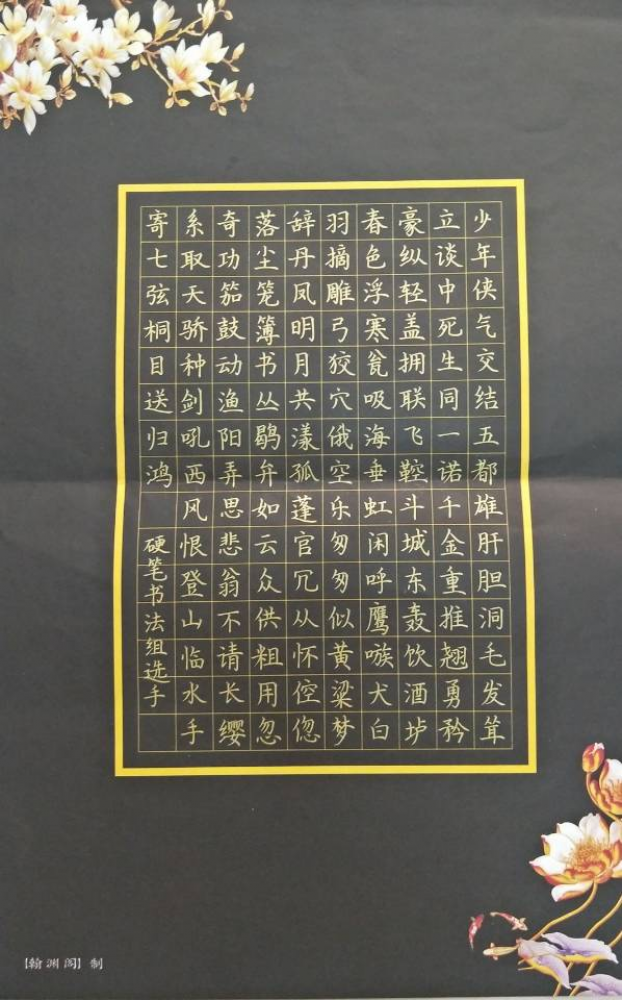 少年侠气交结五都雄肝胆洞毛发耸
立谈中死生同一诺千金重推翘勇矜
豪纵轻盖拥联飞鞚斗城东轰饮酒垆
春色浮寒瓮吸海垂虹闲呼鹰嗾犬白
羽摘雕弓狡穴俄空乐匆匆似黄粱梦
辞丹凤明月共漾孤蓬官冗从怀倥偬
落尘笼簿书丛鹖弁如云众供粗用忽
奇功笳鼓动渔阳弄思悲翁不请长缨
系取天骄种剑吼西风恨登山临水手
寄七弦桐目送归鸿
硬笔书法组选手
【翰渊阁】制